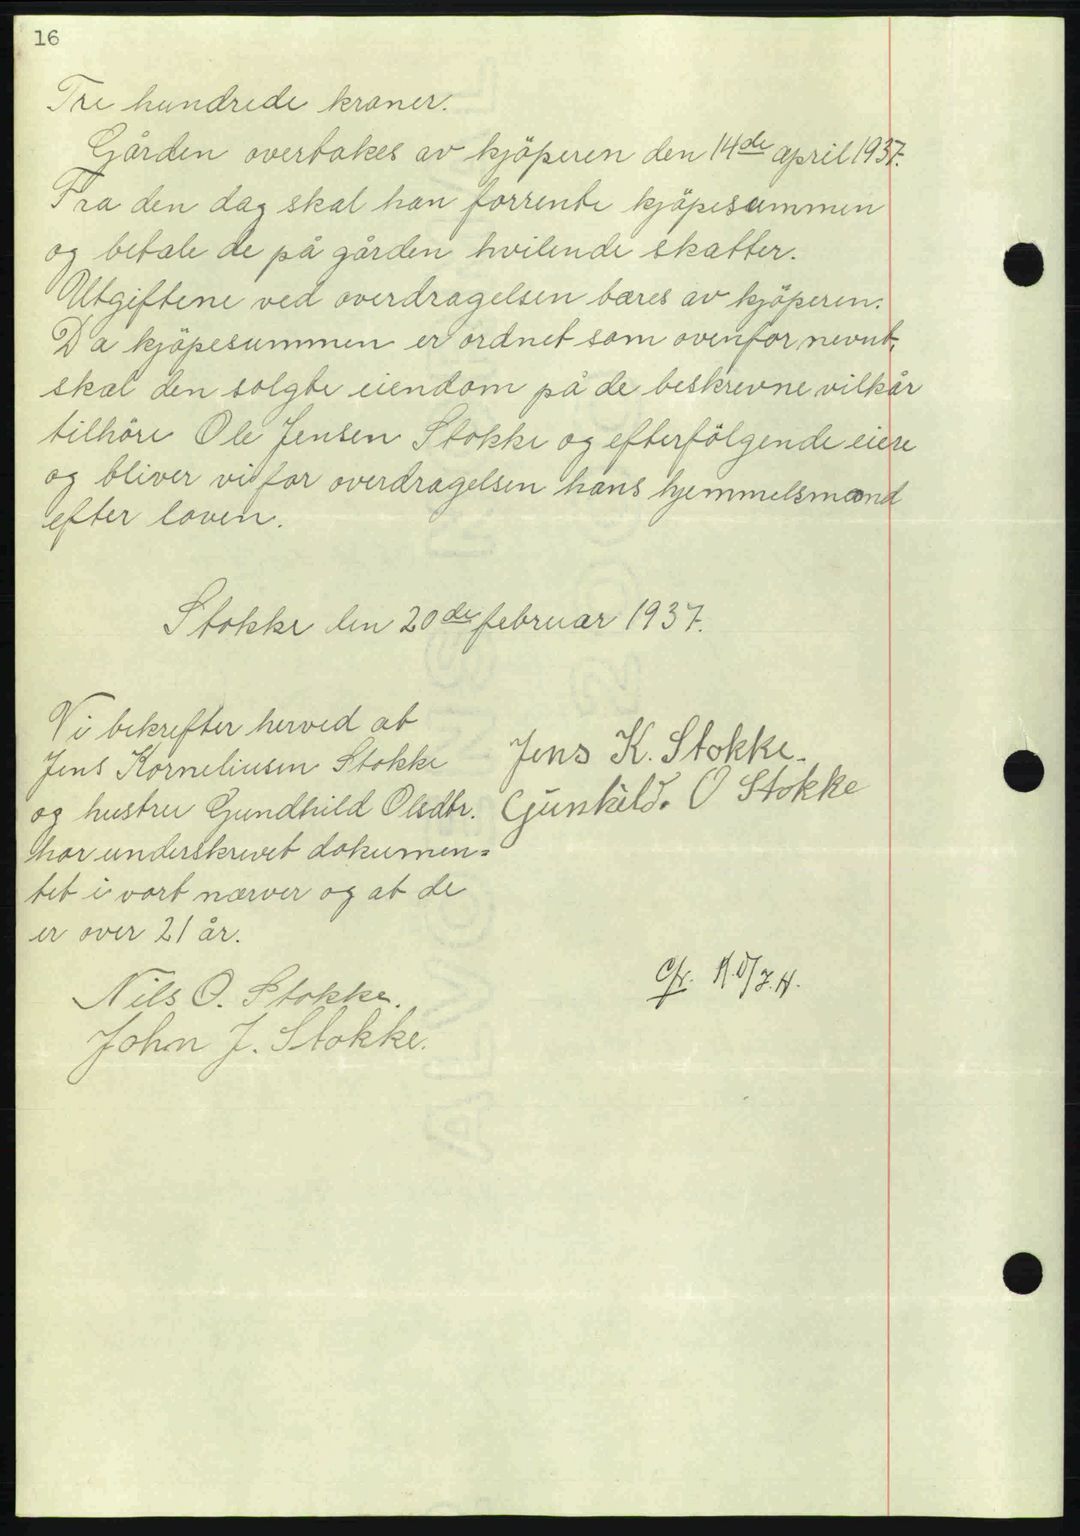 16
Tre hundrede kroner.
Gården overtakes av kjöperen den 14de april 1937.
Fra den dag skal han forrente kjöpesummen
og betale de på gården hvilende skatter.
Utgiftene ved overdragelsen bæres av kjöperen.
Da kjöpesummen er ordnet som ovenfor nevnt,
skal den solgte eiendom på de beskrevne vilkår
tilhöre Ole Jensen Stokke og efterfölgende eiere
og bliver vi for overdragelsen hans hjemmelsmænd
efter loven.
Stokke den 20de februar 1937.
Vi bekrefter herved at
Jens Korneliusen Stokke
og hustru Gundhild Olsdtr.
har underskrevet dokumen=
tet i vort nærver og at de
er over 21 år.
Jens K. Stokke.
Gunhild. O Stokke
Nils O. Stokke.
John J. Stokke.